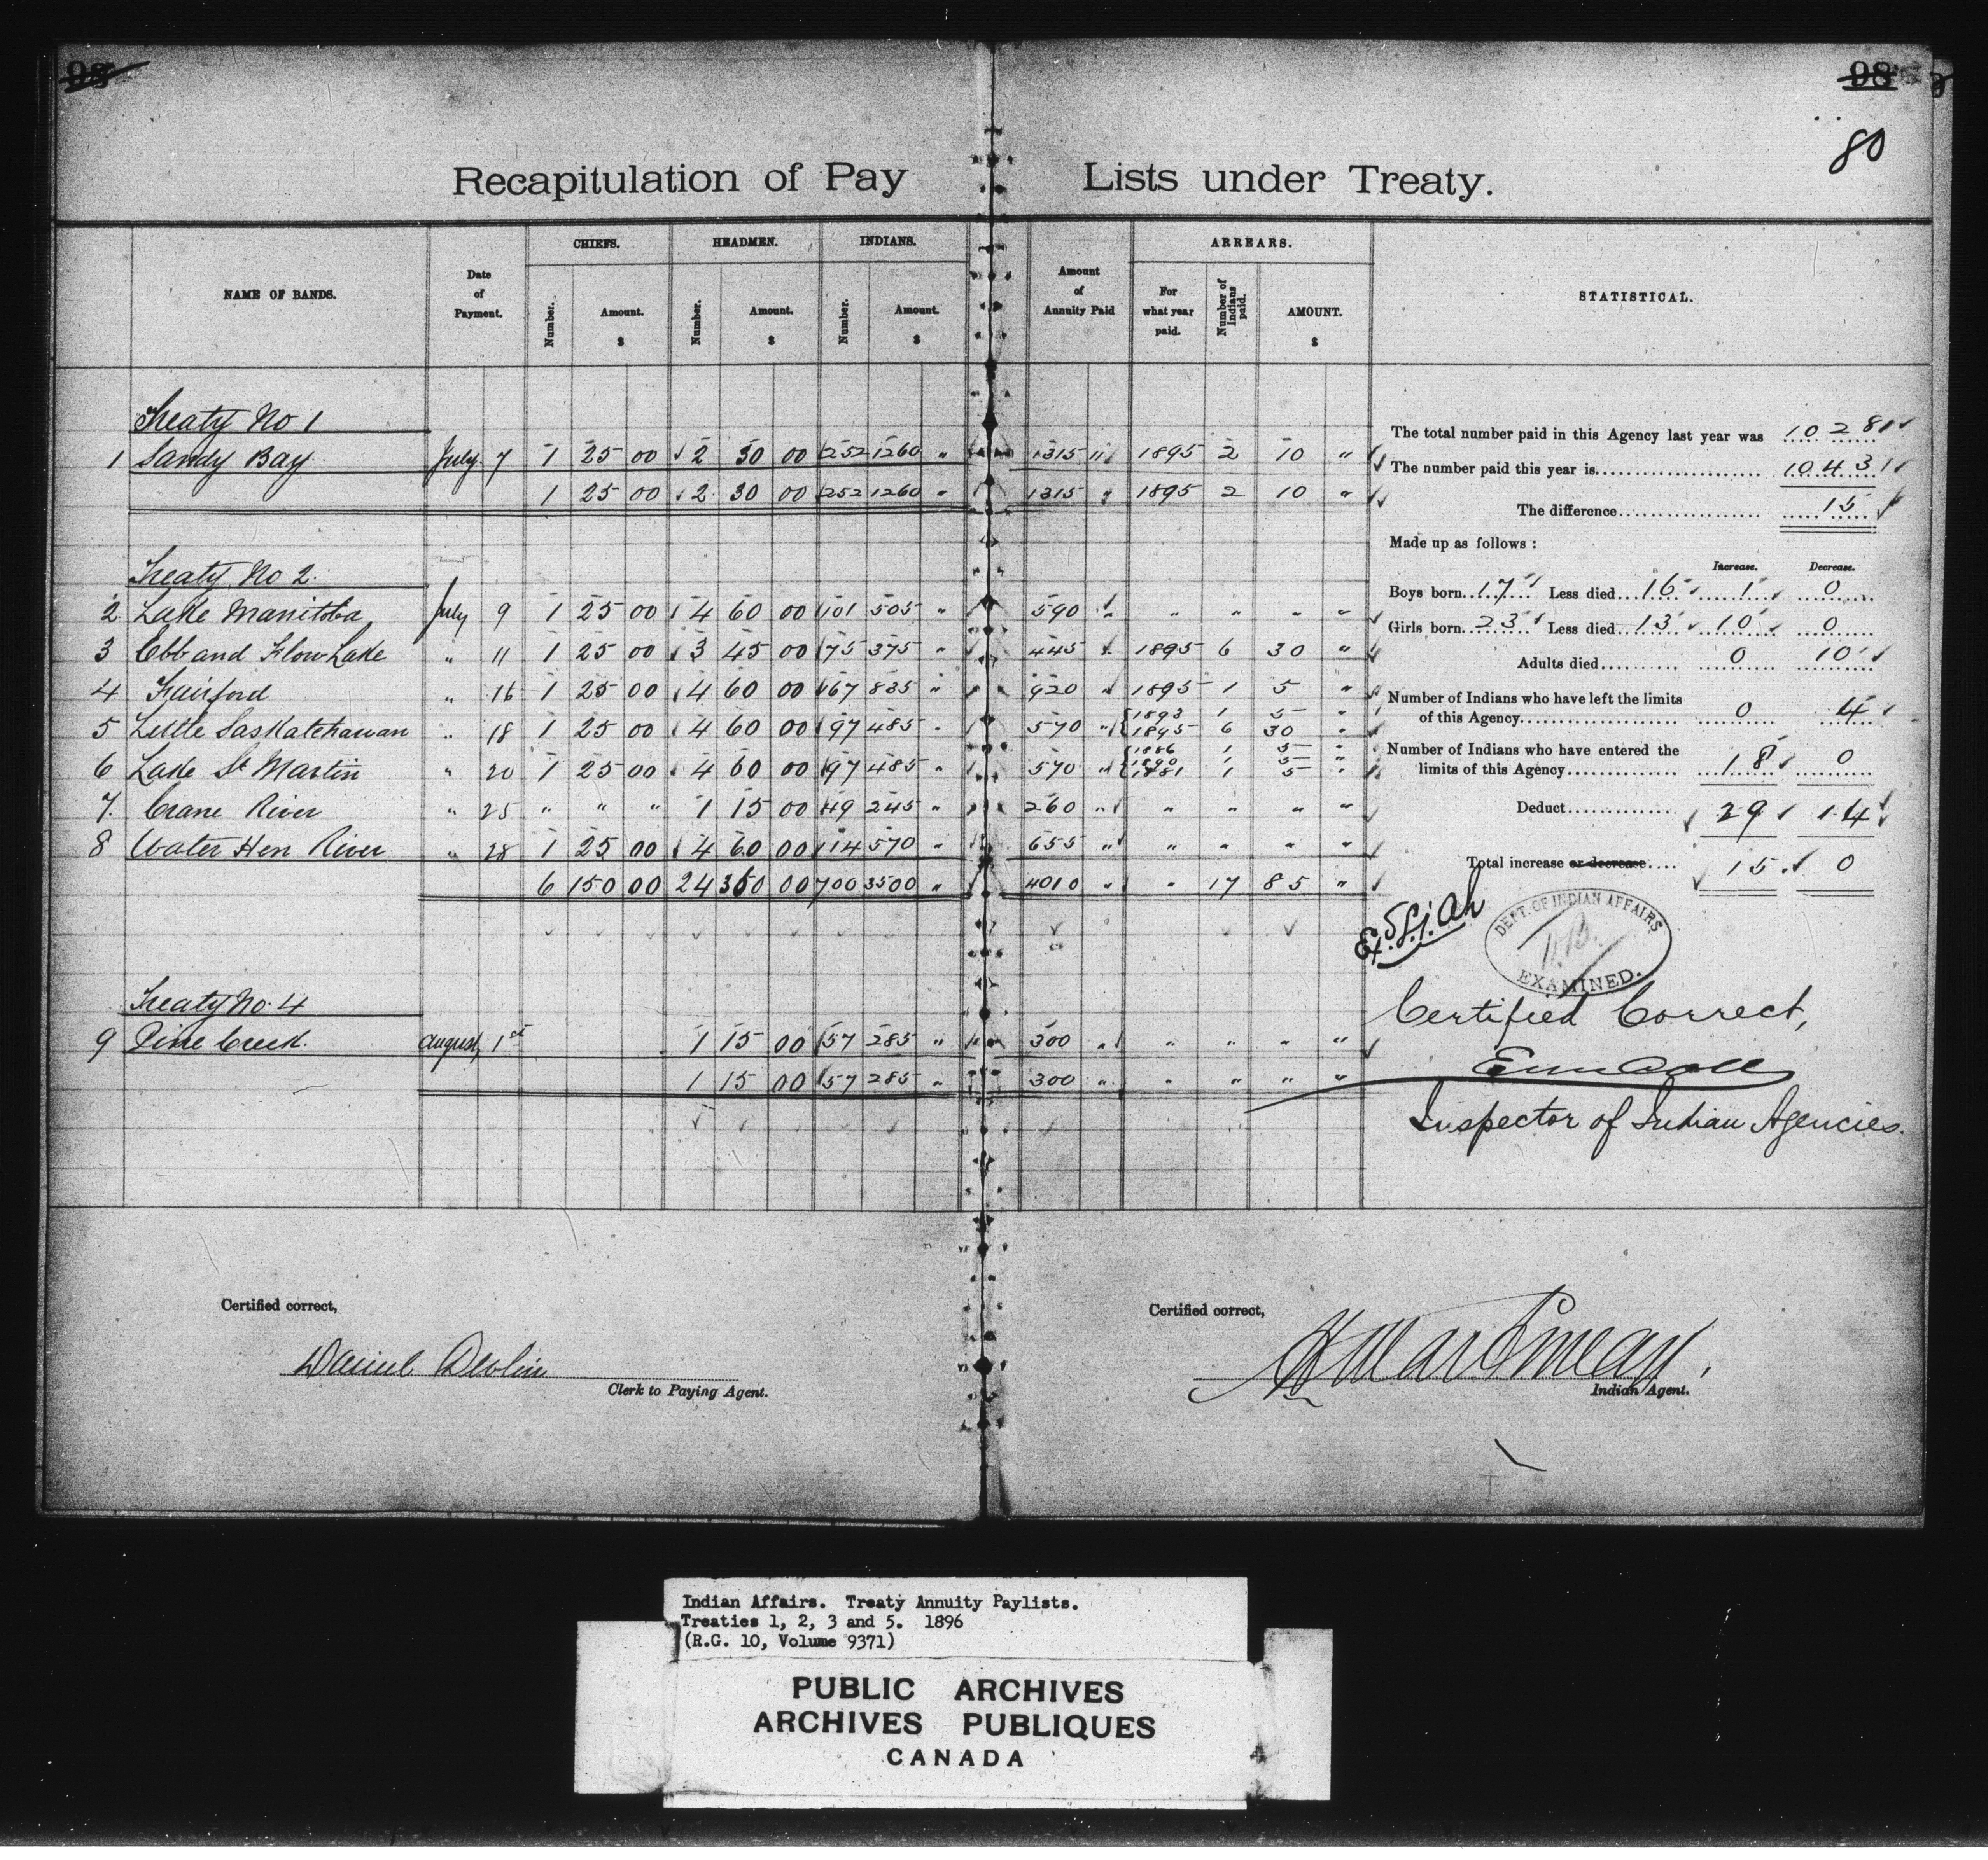 98
98
80
Recapitulation of Pay Lists under Treaty.
NAME OF BANDS. Date of Payment. CHIEFS. HEADMEN. INDIANS. Amount of Annuity Paid ARREARS. STATISTICAL.
Number. Amount. $ Number. Amount. $ Number. Amount. $ For what year paid. Number of Indians paid. AMOUNT. $
Treaty No 1
1 Sandy Bay July 7 1 25 00 2 30 00 252 1260 " 1315 " 1895 2 10 "
1 25 00 2 30 00 252 1260 " 1315 " 1895 2 10 "
Treaty No 2
2 Lake Manitoba July 9 1 25 00 4 60 00 101 505 " 590 " " " " "
3 Ebb and Flow Lake " 11 1 25 00 3 45 00 75 375 " 445 " 1895 6 30 "
4 Fairford " 16 1 25 00 4 60 00 167 835 " 920 " 1895 1 5 "
5 Little Saskatchawan " 18 1 25 00 4 60 00 97 485 " 570 " 1893 1 5 "
1895 6 30 "
6 Lake St Martin " 20 1 25 00 4 60 00 97 485 " 570 " 1886 1 5 "
1890 1 5 "
1 5 "
7. Crane River " 25 " " " 1 15 00 49 245 " 260 " " " " "
8 Water Hen River " 28 1 25 00 4 60 00 114 570 " 655 " " " " "
6 150 00 24 360 00 700 3500 " 4010 " " 17 85 "
Treaty No. 4
9 Pine Creek. August 1st 1 15 00 57 285 " 300 " " " " "
1 15 00 57 285 " 300 " " " " "
The total number paid in this Agency last year was 1028
The number paid this year is 1043
The difference 15
Made up as follows :
Increase. Decrease.
Boys born 17 Less died 16 1 0
Girls born 23 Less died 13 10 0
Adults died 0 10
Number of Indians who have left the limits
of this Agency 0 4
Number of Indians who have entered the
limits of this Agency 18 0
Deduct 29 14
Total increase or decrease 15 0
DEPT. OF INDIAN AFFAIRS
EXAMINED.
Certified Correct,
Inspector of Indian Agencies.
Certified correct,
Daniel Devlin
Clerk to Paying Agent.
Certified correct,
Indian Agent.
Indian Affairs. Treaty Annuity Paylists.
Treaties 1, 2, 3 and 5. 1896
(R.G. 10, Volume 9371)
PUBLIC ARCHIVES
ARCHIVES PUBLIQUES
CANADA